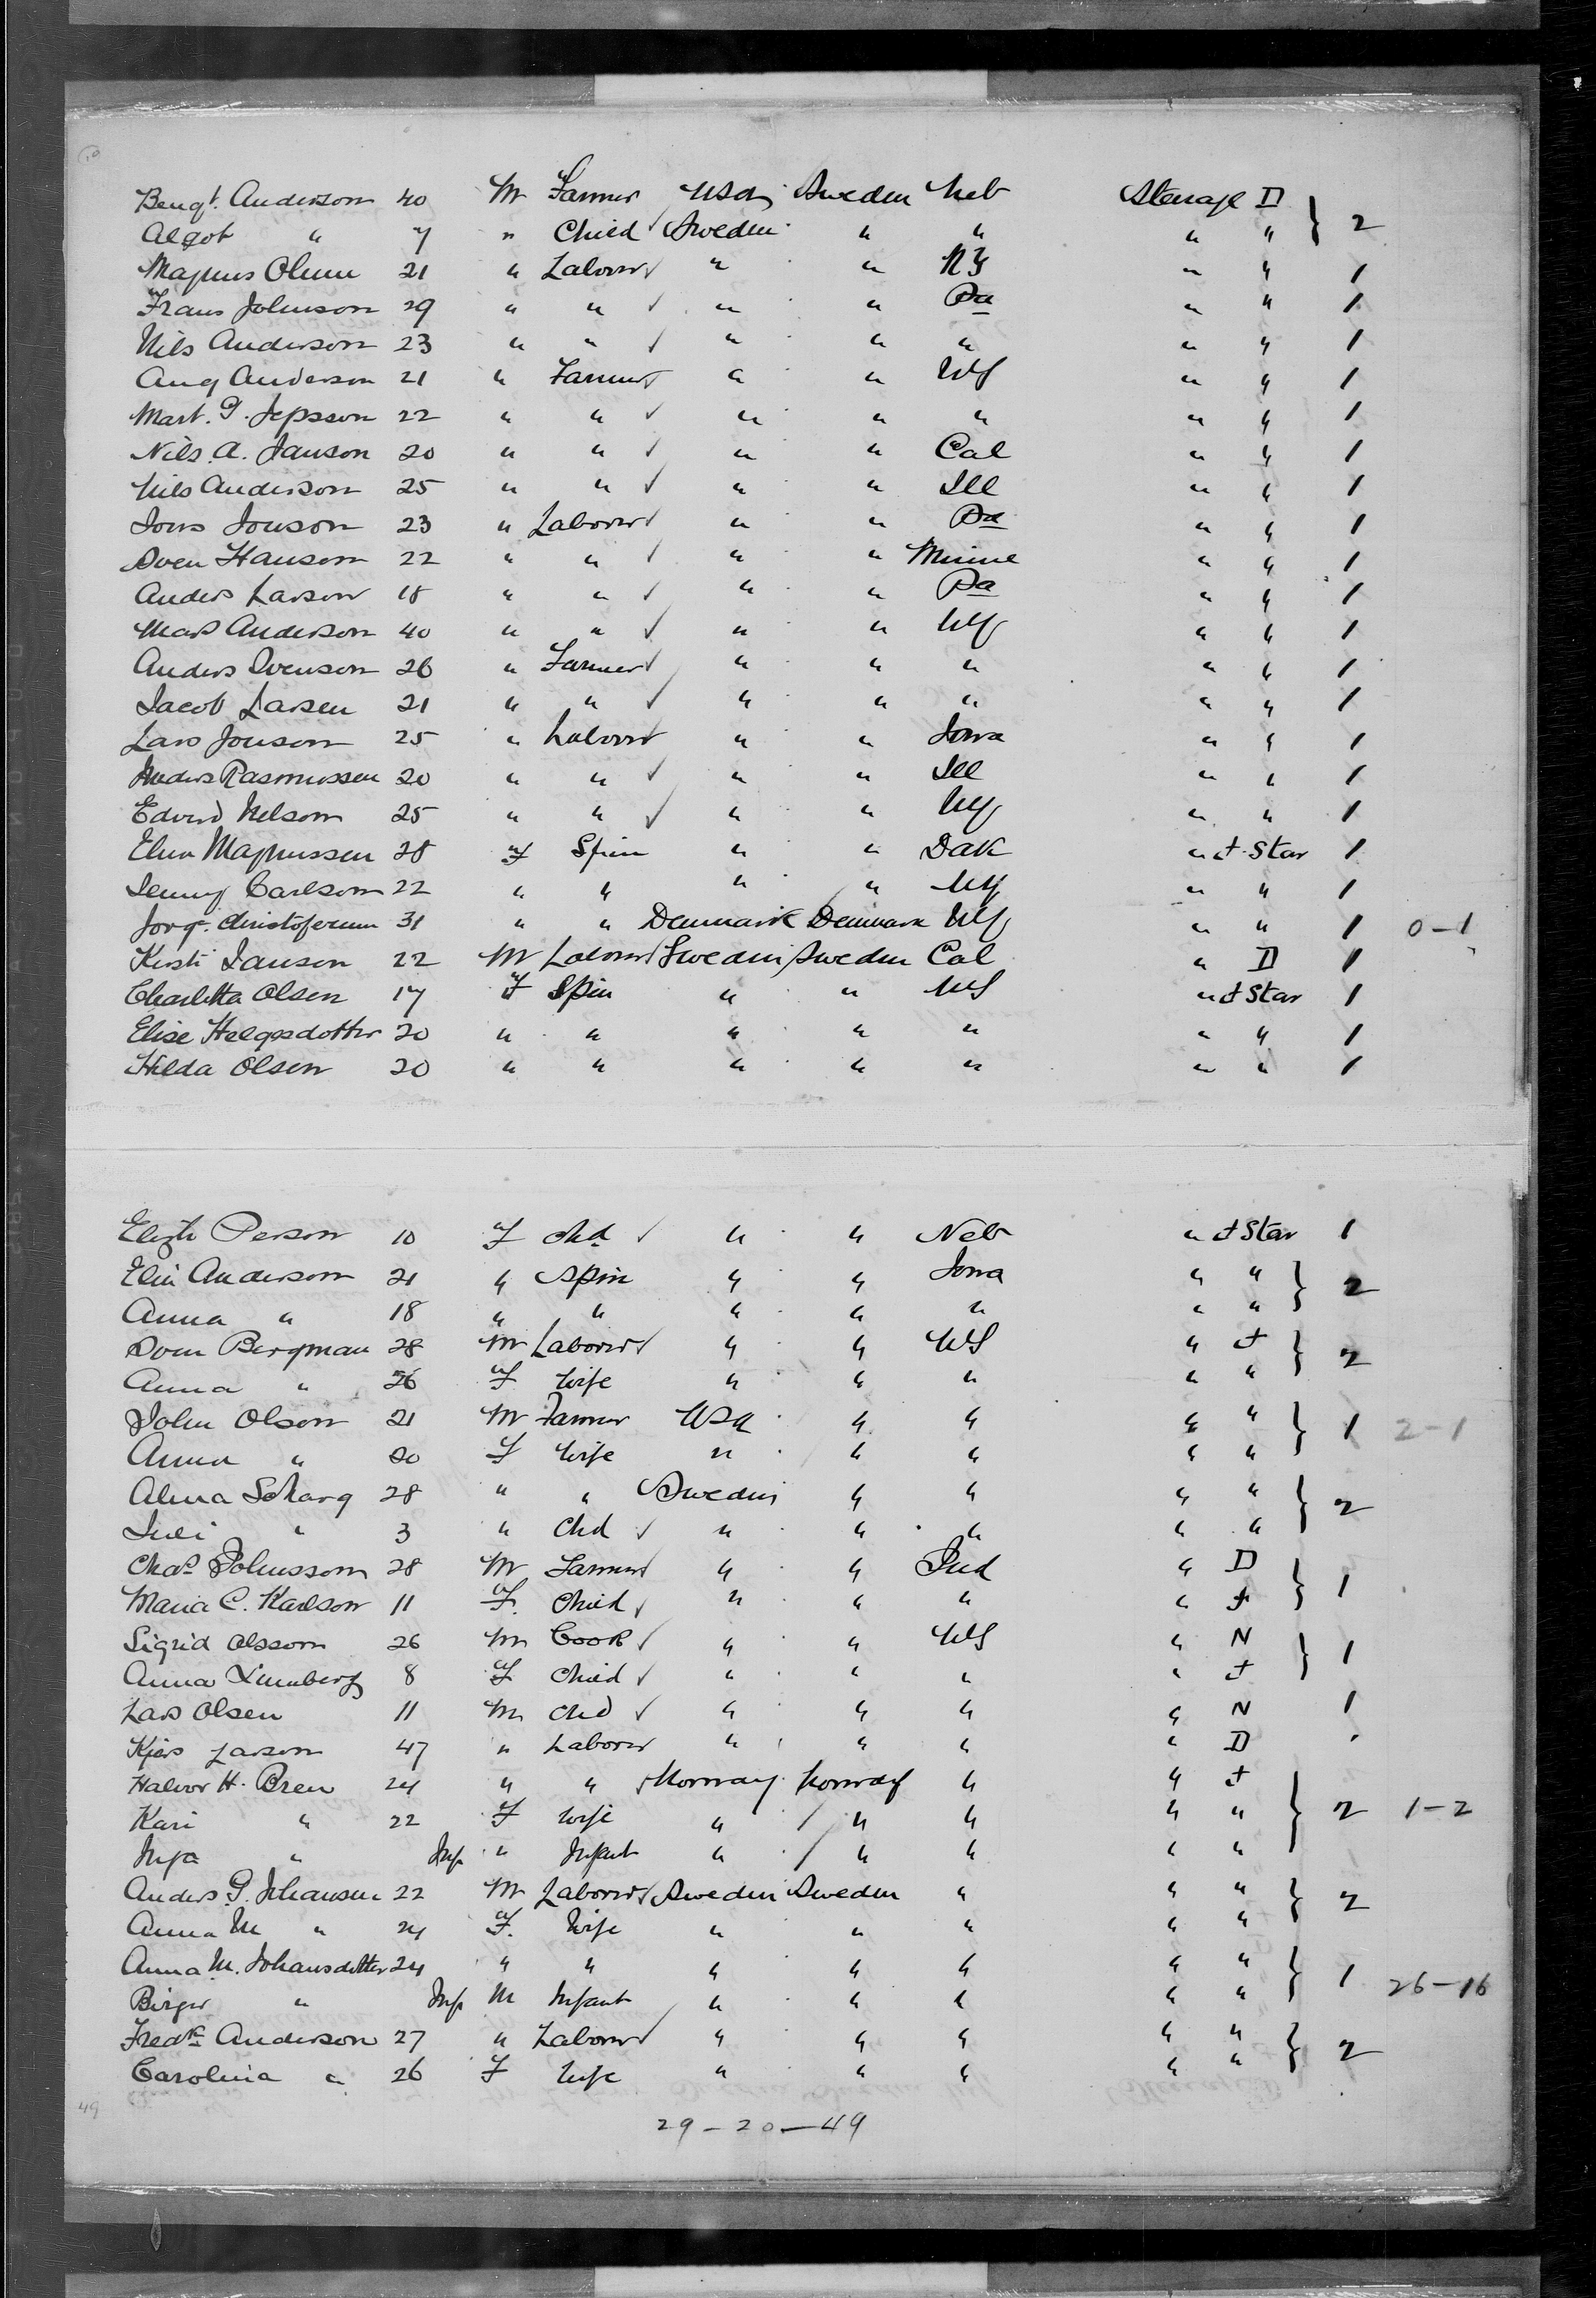 Bengt. Anderson 40 M Farmer USA Sweden Neb Steerage D } 2
Algot " 7 " Child Sweden " " " "
Magnus 21 " Laborer " " NY " " 1
Frans Johnson 29 " " " " Pa " " 1
Nils Anderson 23 " " " " " " " 1
Aug Anderson 21 " Farmer " " NY " " 1
Mart. P. Jepsson 22 " " " " " " " 1
Nils. A. Janson 20 " " " " Cal " " 1
Nils Anderson 25 " " " " Ill " " 1
Jons Jonson 23 " Laborer " " Pa " " 1
Sven Hanson 22 " " " " Minne " " 1
Anders Larson 18 " " " " Pa " " 1
Mas Anderson 40 " " " " NY " " 1
Anders Svenson 26 " Farmer " " " " " 1
Jacob Larsen 21 " " " " " " " 1
Lars Jonson 25 " Laborer " " Iowa " " 1
Anders Rasmussen 20 " " " " Ill " " 1
Edvard Nelson 25 " " " " NY " " 1
Elna Magnussen 28 F Spin " " Dak " F. Star 1
Jenny Carlson 22 " " " " NY " " 1
Jorg. 31 " " Denmark Denmark NY " " 1 0-1
Kirsti Janson 22 M Laborer Sweden Sweden Cal " D 1
Charlotta Olsen 17 F Spin " " NY " F Star 1
Elise Helgesdotter 20 " " " " " " " 1
Hilda Olsen 20 " " " " " " " 1
Elizth Person 10 F Chd " " Neb " F Star 1
Elin Anderson 21 " Spin " " Iowa " " } 2
Anna " 18 " " " " " " "
Sven Bergman 28 M Laborer " " NY " F } 2
Anna " 26 F Wife " " " " "
John Olson 21 M Farmer USA " " " " } 1 2-1
Anna " 20 F Wife " " " " "
Alma Scharg 28 " " Sweden " " " " } 2
" 3 " Chd " " " " "
Chas Johnsson 28 M Farmer " " Ind " D } 1
Maria C. Karlson 11 F. Child " " " " F
Sigrid Olsson 26 M Cook " " NY " N } 1
Anna Linnberg 8 F Child " " " " F
Lars Olsen 11 M Chd " " " " N 1
Larson 47 " Laborer " " " " D '
Halvor H. Bren 24 " " Norway Norway " " F } 2 1-2
Kari " 22 F Wife " " " " "
Inga " Inf " Infant " " " " "
Anders P. Johansen 22 M Laborer Sweden Sweden " " " } 2
Anna M " 24 F. Wife " " " " "
Anna M. Johansdotter 24 " " " " " " " } 1 26-16
Birger " Inf M Infant " " " " "
Fredk Anderson 27 " Laborer " " " " " } 2
Carolina " 26 F Wife " " " " "
49
29-20-49